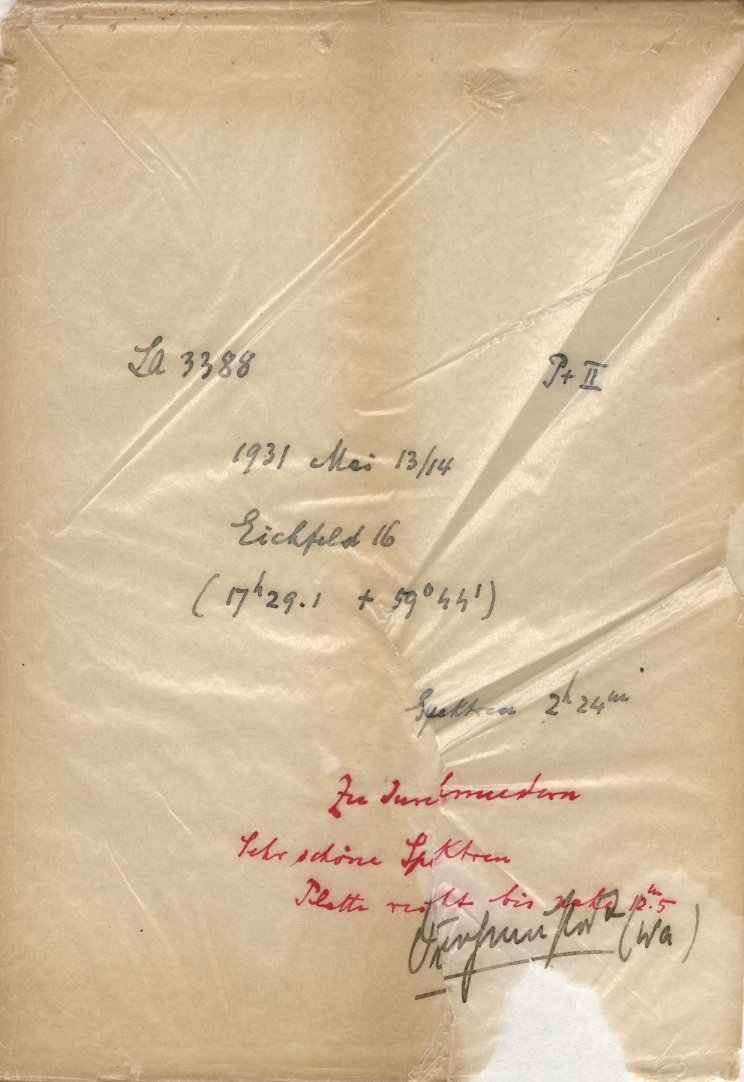 La 3388 P+ II
1931 Mai 13/14
Eichfeld 16
(17ʰ29.1 + 59°44')
Spektren 2ʰ24ᵐ
Zu durchmustern
Sehr schöne Spektren
Platte reicht bis nahe 12ᵐ.5
(Wa)